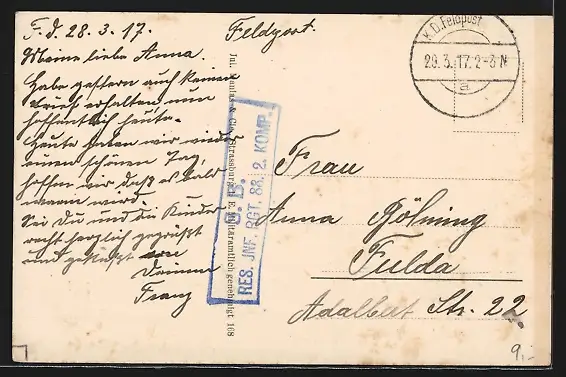 F. d. 28.3.17.
Meine liebe Anna.
Habe gestern auch keinen
Brief erhalten, nun
hoffentlich heute.
Heute haben wir wieder
einen schönen Tag,
hoffen wir daß es bald
warm wird.
Sei Du und die Kinder
recht herzlich gegrüßt
und geküßt von
Deinem
Franz
Feldpost.
K.D. Feldpost
29.3.17. 2-3 N
a
S. B.
RES. JNF. RGT. 88, 2. KOMP.
Jul. & Cie., Strassburg i. E. Militäramtlich genehmigt 168
Frau
Anna Göhning
Fulda
Adalbert Str. 22
9,-